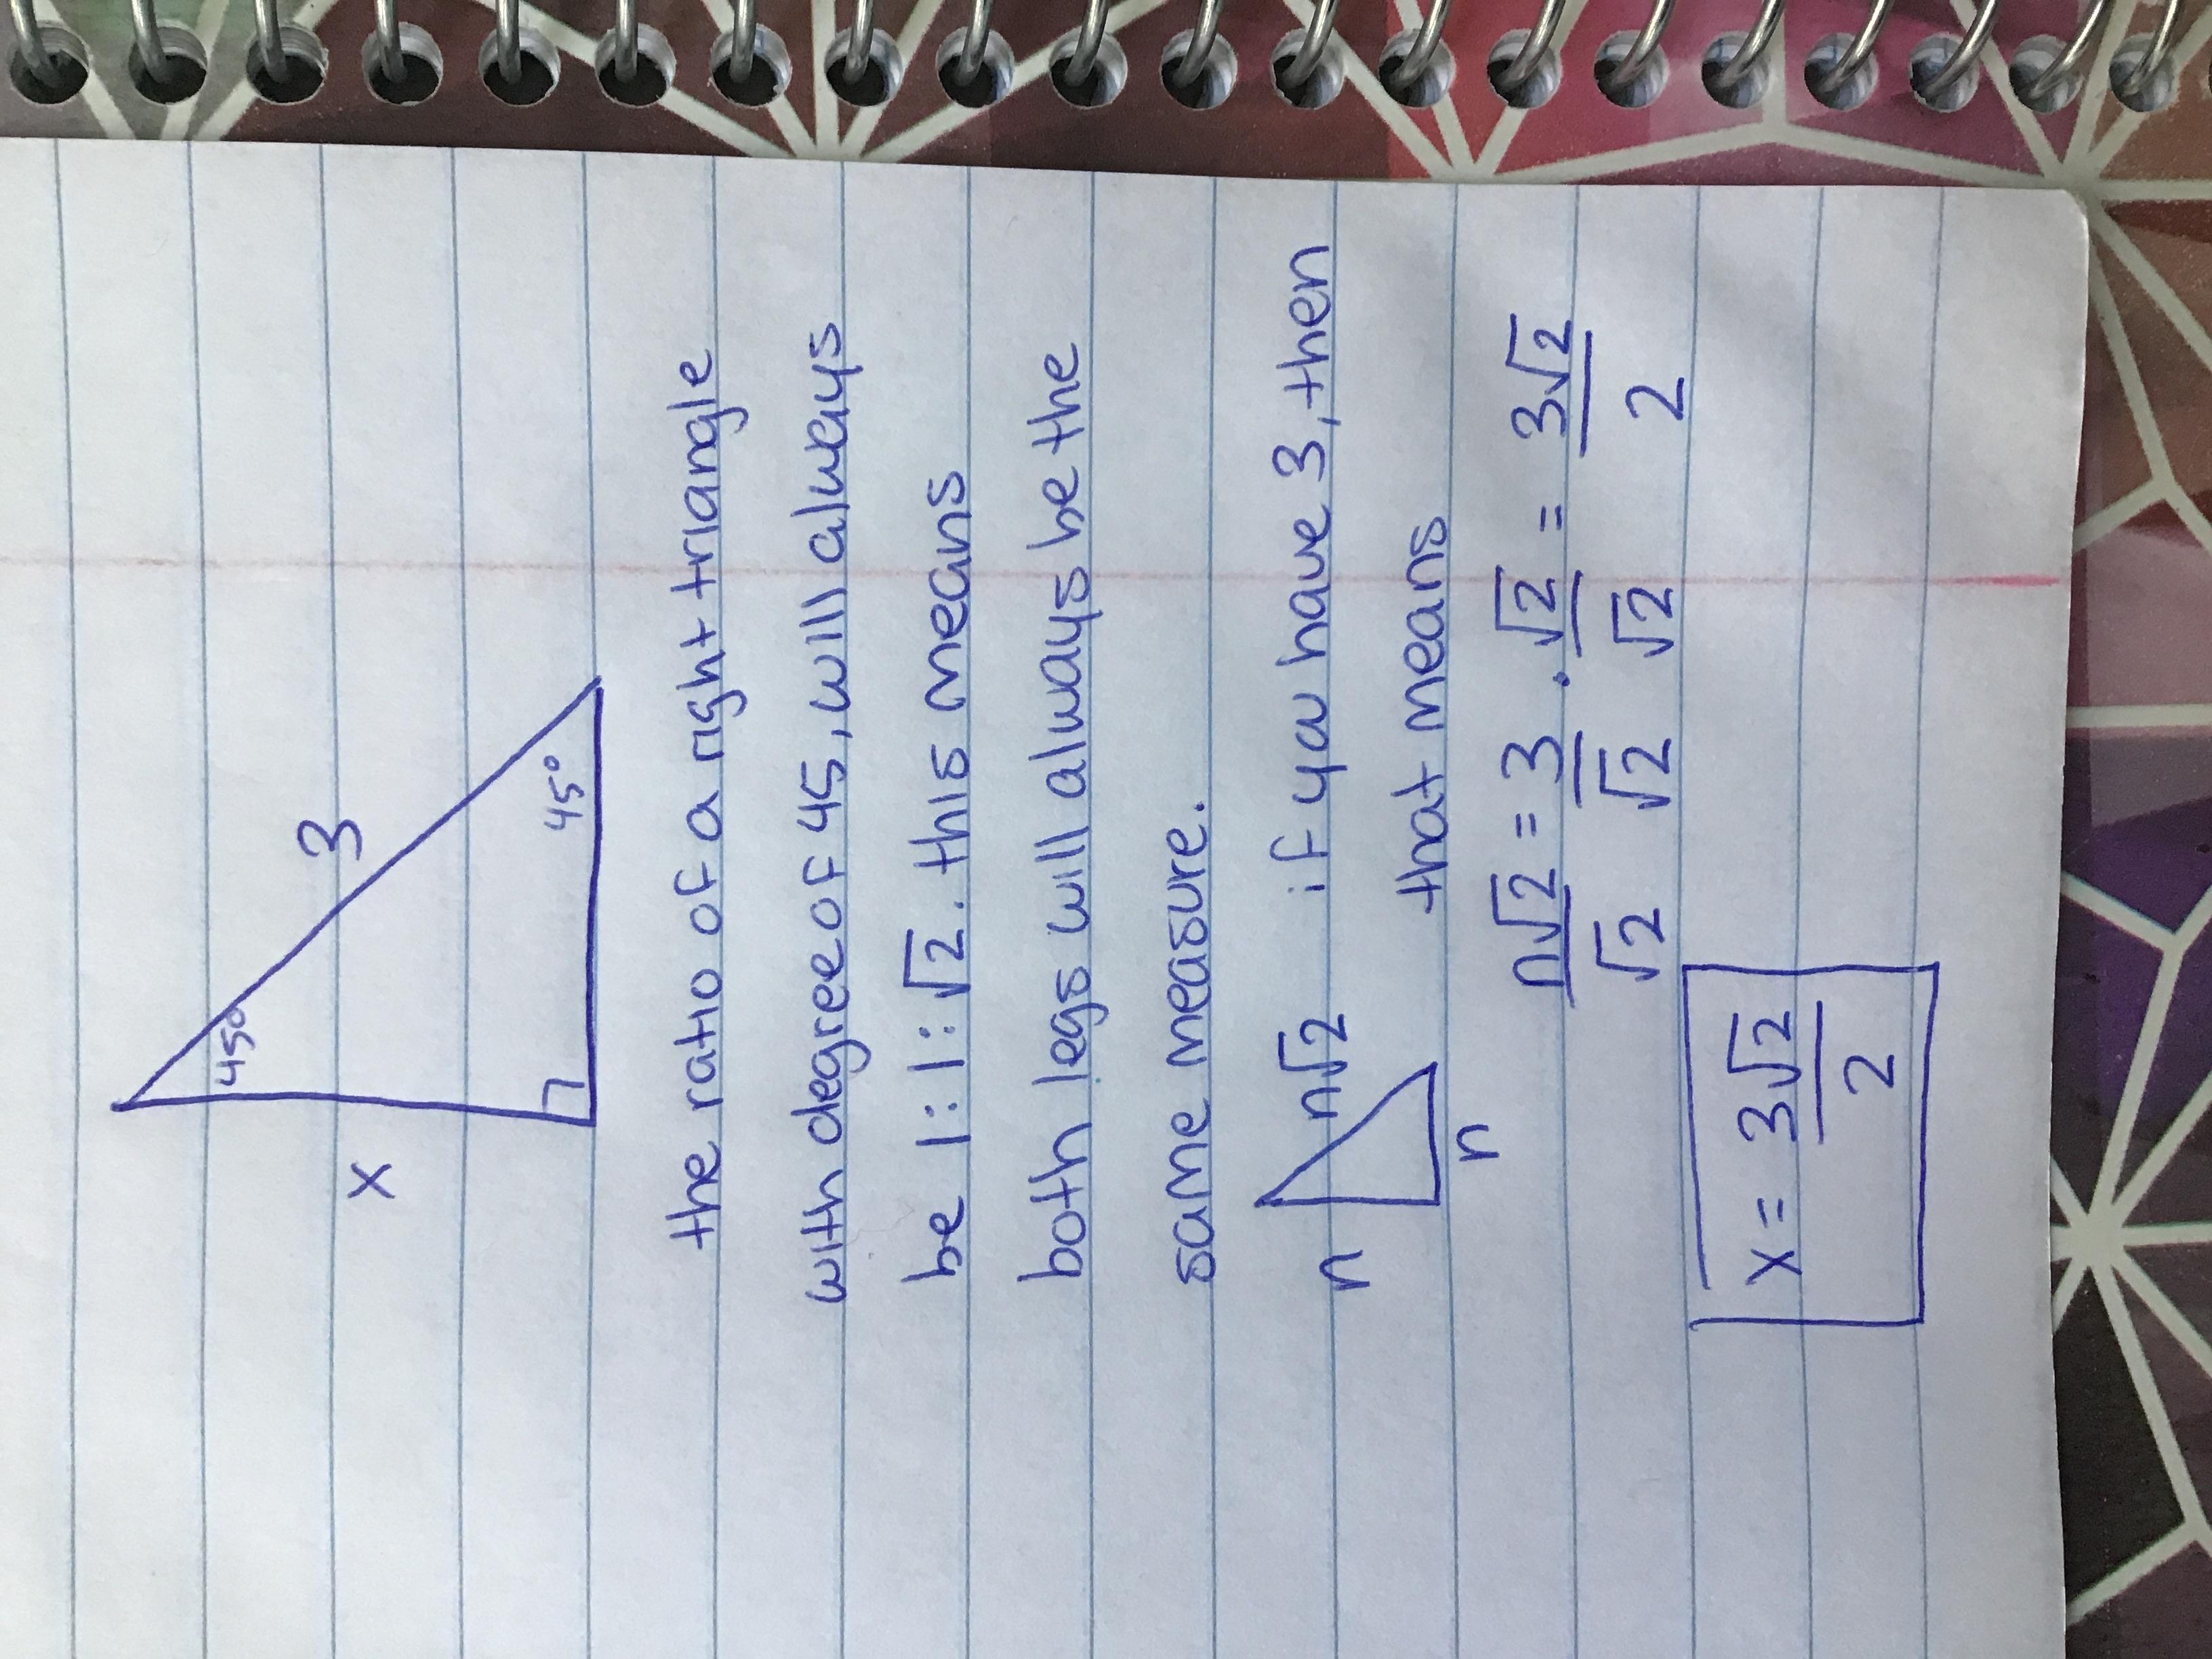 45°
3
x
45°
the ratio of a right triangle
with degree of 45, will always
be 1:1:√2. this means
both legs will always be the
same measure.
n n√2 if you have 3, then
n that means
n√2/√2 = 3/√2 · √2/√2 = 3√2/2
x = 3√2/2